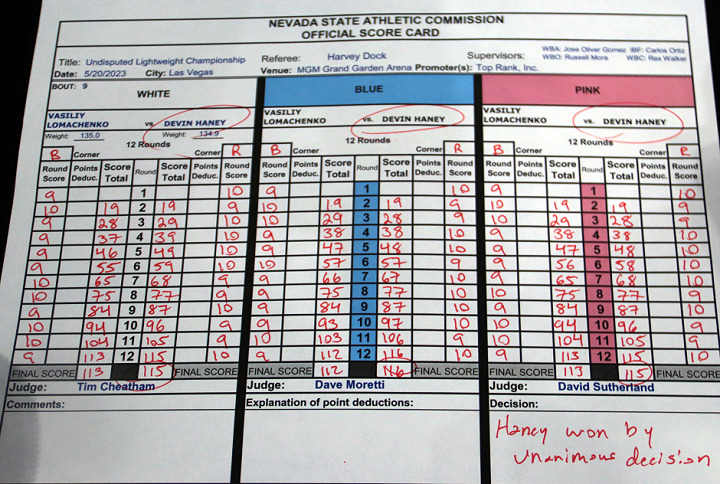 NEVADA STATE ATHLETIC COMMISSION
OFFICIAL SCORE CARD
Title: Undisputed Lightweight Championship Referee: Harvey Dock Supervisors: WBA: Jose Oliver Gomez IBF: Carlos Ortiz
WBO: Russell Mora WBC: Rex Walker
Date: 5/20/2023 City: Las Vegas Venue: MGM Grand Garden Arena Promoter(s): Top Rank, Inc.
BOUT: 9
WHITE BLUE PINK
VASILIY LOMACHENKO vs. DEVIN HANEY VASILIY LOMACHENKO vs. DEVIN HANEY VASILIY LOMACHENKO vs. DEVIN HANEY
Weight: 135.0 Weight: 134.9
12 Rounds 12 Rounds 12 Rounds
B Corner Corner R B Corner Corner R B Corner Corner R
Round Score Points Deduc. Score Total Round Score Total Points Deduc. Round Score Round Score Points Deduc. Score Total Round Score Total Points Deduc. Round Score Round Score Points Deduc. Score Total Round Score Total Points Deduc. Round Score
9 1 10 9 1 10 9 1 10
10 19 2 19 9 10 19 2 19 9 10 19 2 19 9
9 28 3 29 10 10 29 3 28 9 10 29 3 28 9
9 37 4 39 10 9 38 4 38 10 9 38 4 38 10
9 46 5 49 10 9 47 5 48 10 9 47 5 48 10
9 55 6 59 10 10 57 6 57 9 9 56 6 58 10
10 65 7 68 9 9 66 7 67 10 9 65 7 68 10
10 75 8 77 9 9 75 8 77 10 10 75 8 77 9
9 84 9 87 10 9 84 9 87 10 9 84 9 87 10
10 94 10 96 9 9 93 10 97 10 10 94 10 96 9
10 104 11 105 9 10 103 11 106 9 10 104 11 105 9
9 113 12 115 10 9 112 12 116 10 9 113 12 115 10
FINAL SCORE 113 115 FINAL SCORE FINAL SCORE 112 116 FINAL SCORE FINAL SCORE 113 115 FINAL SCORE
Judge: Tim Cheatham Judge: Dave Moretti Judge: David Sutherland
Comments: Explanation of point deductions: Decision:
Haney won by
unanimous decision